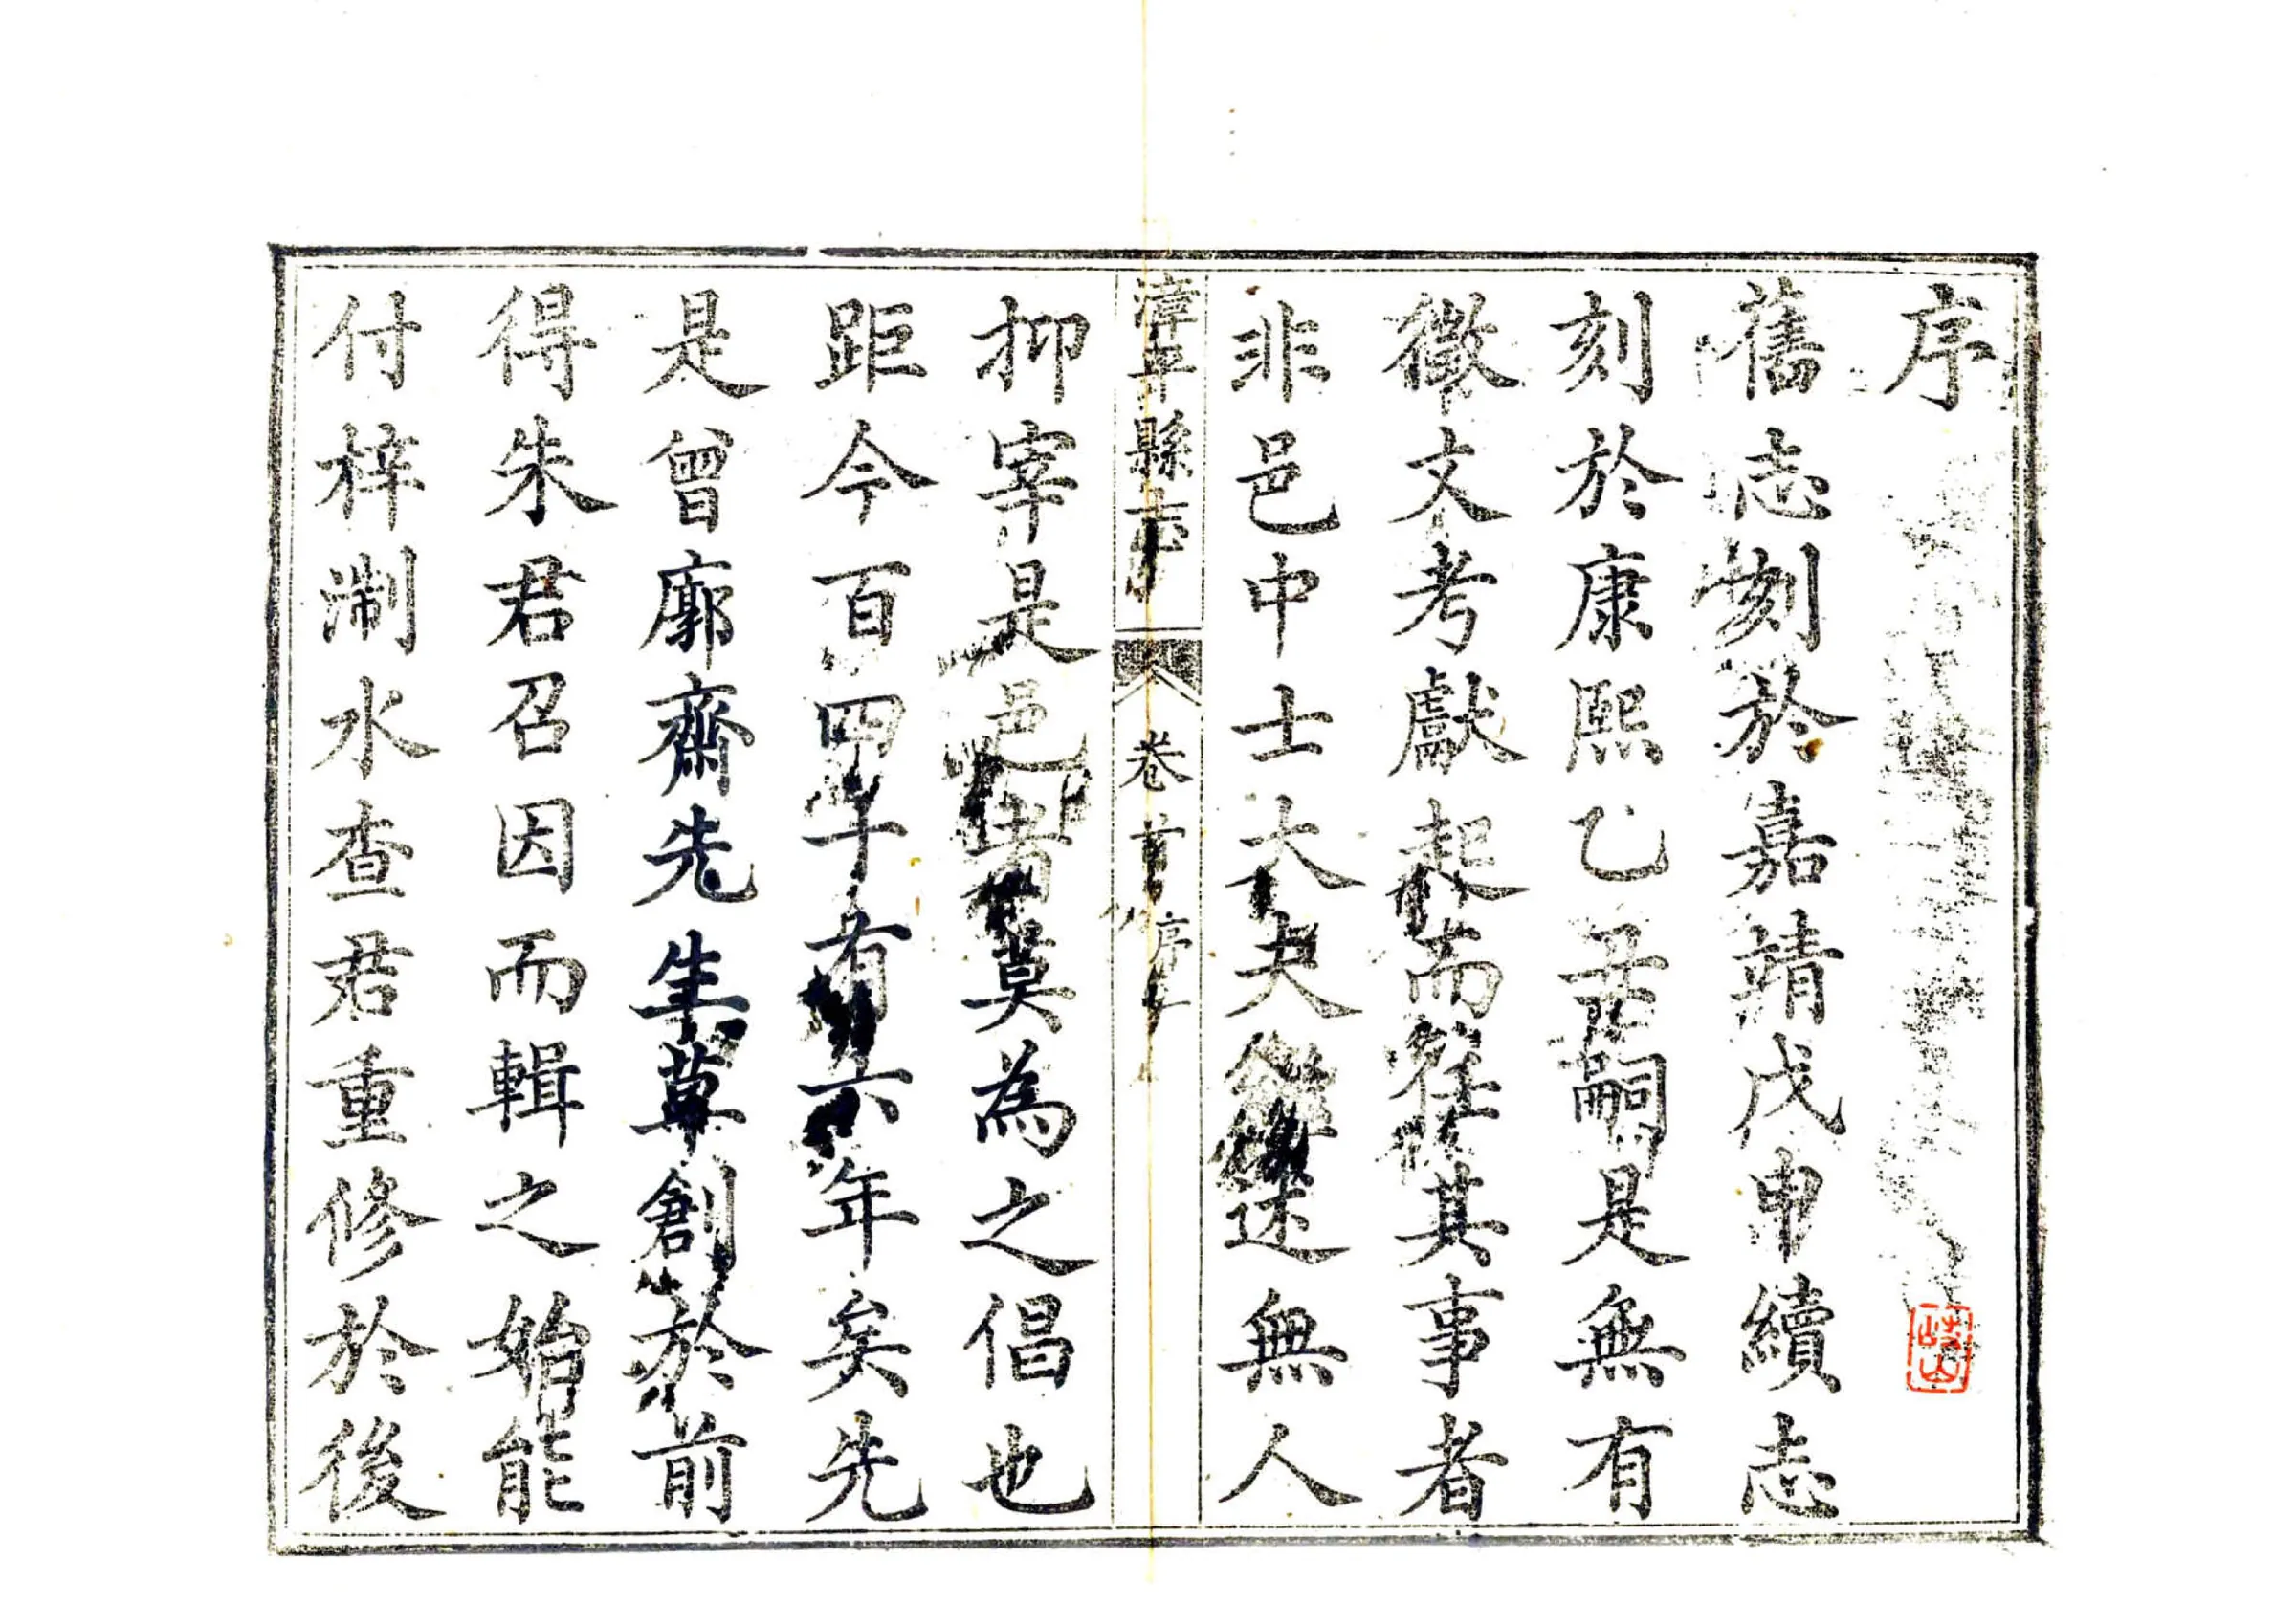 序
舊志刻於嘉靖戊申續志
刻於康熙乙丑嗣是無有
徵文考獻起而任其事者
非邑中士大夫繼述無人
漳平縣志
卷首
序
抑宰是邑者莫為之倡也
距今百四十有六年矣先
是曾廓齋先生草創於前
得朱君召因而輯之始能
付梓淛水查君重修於後